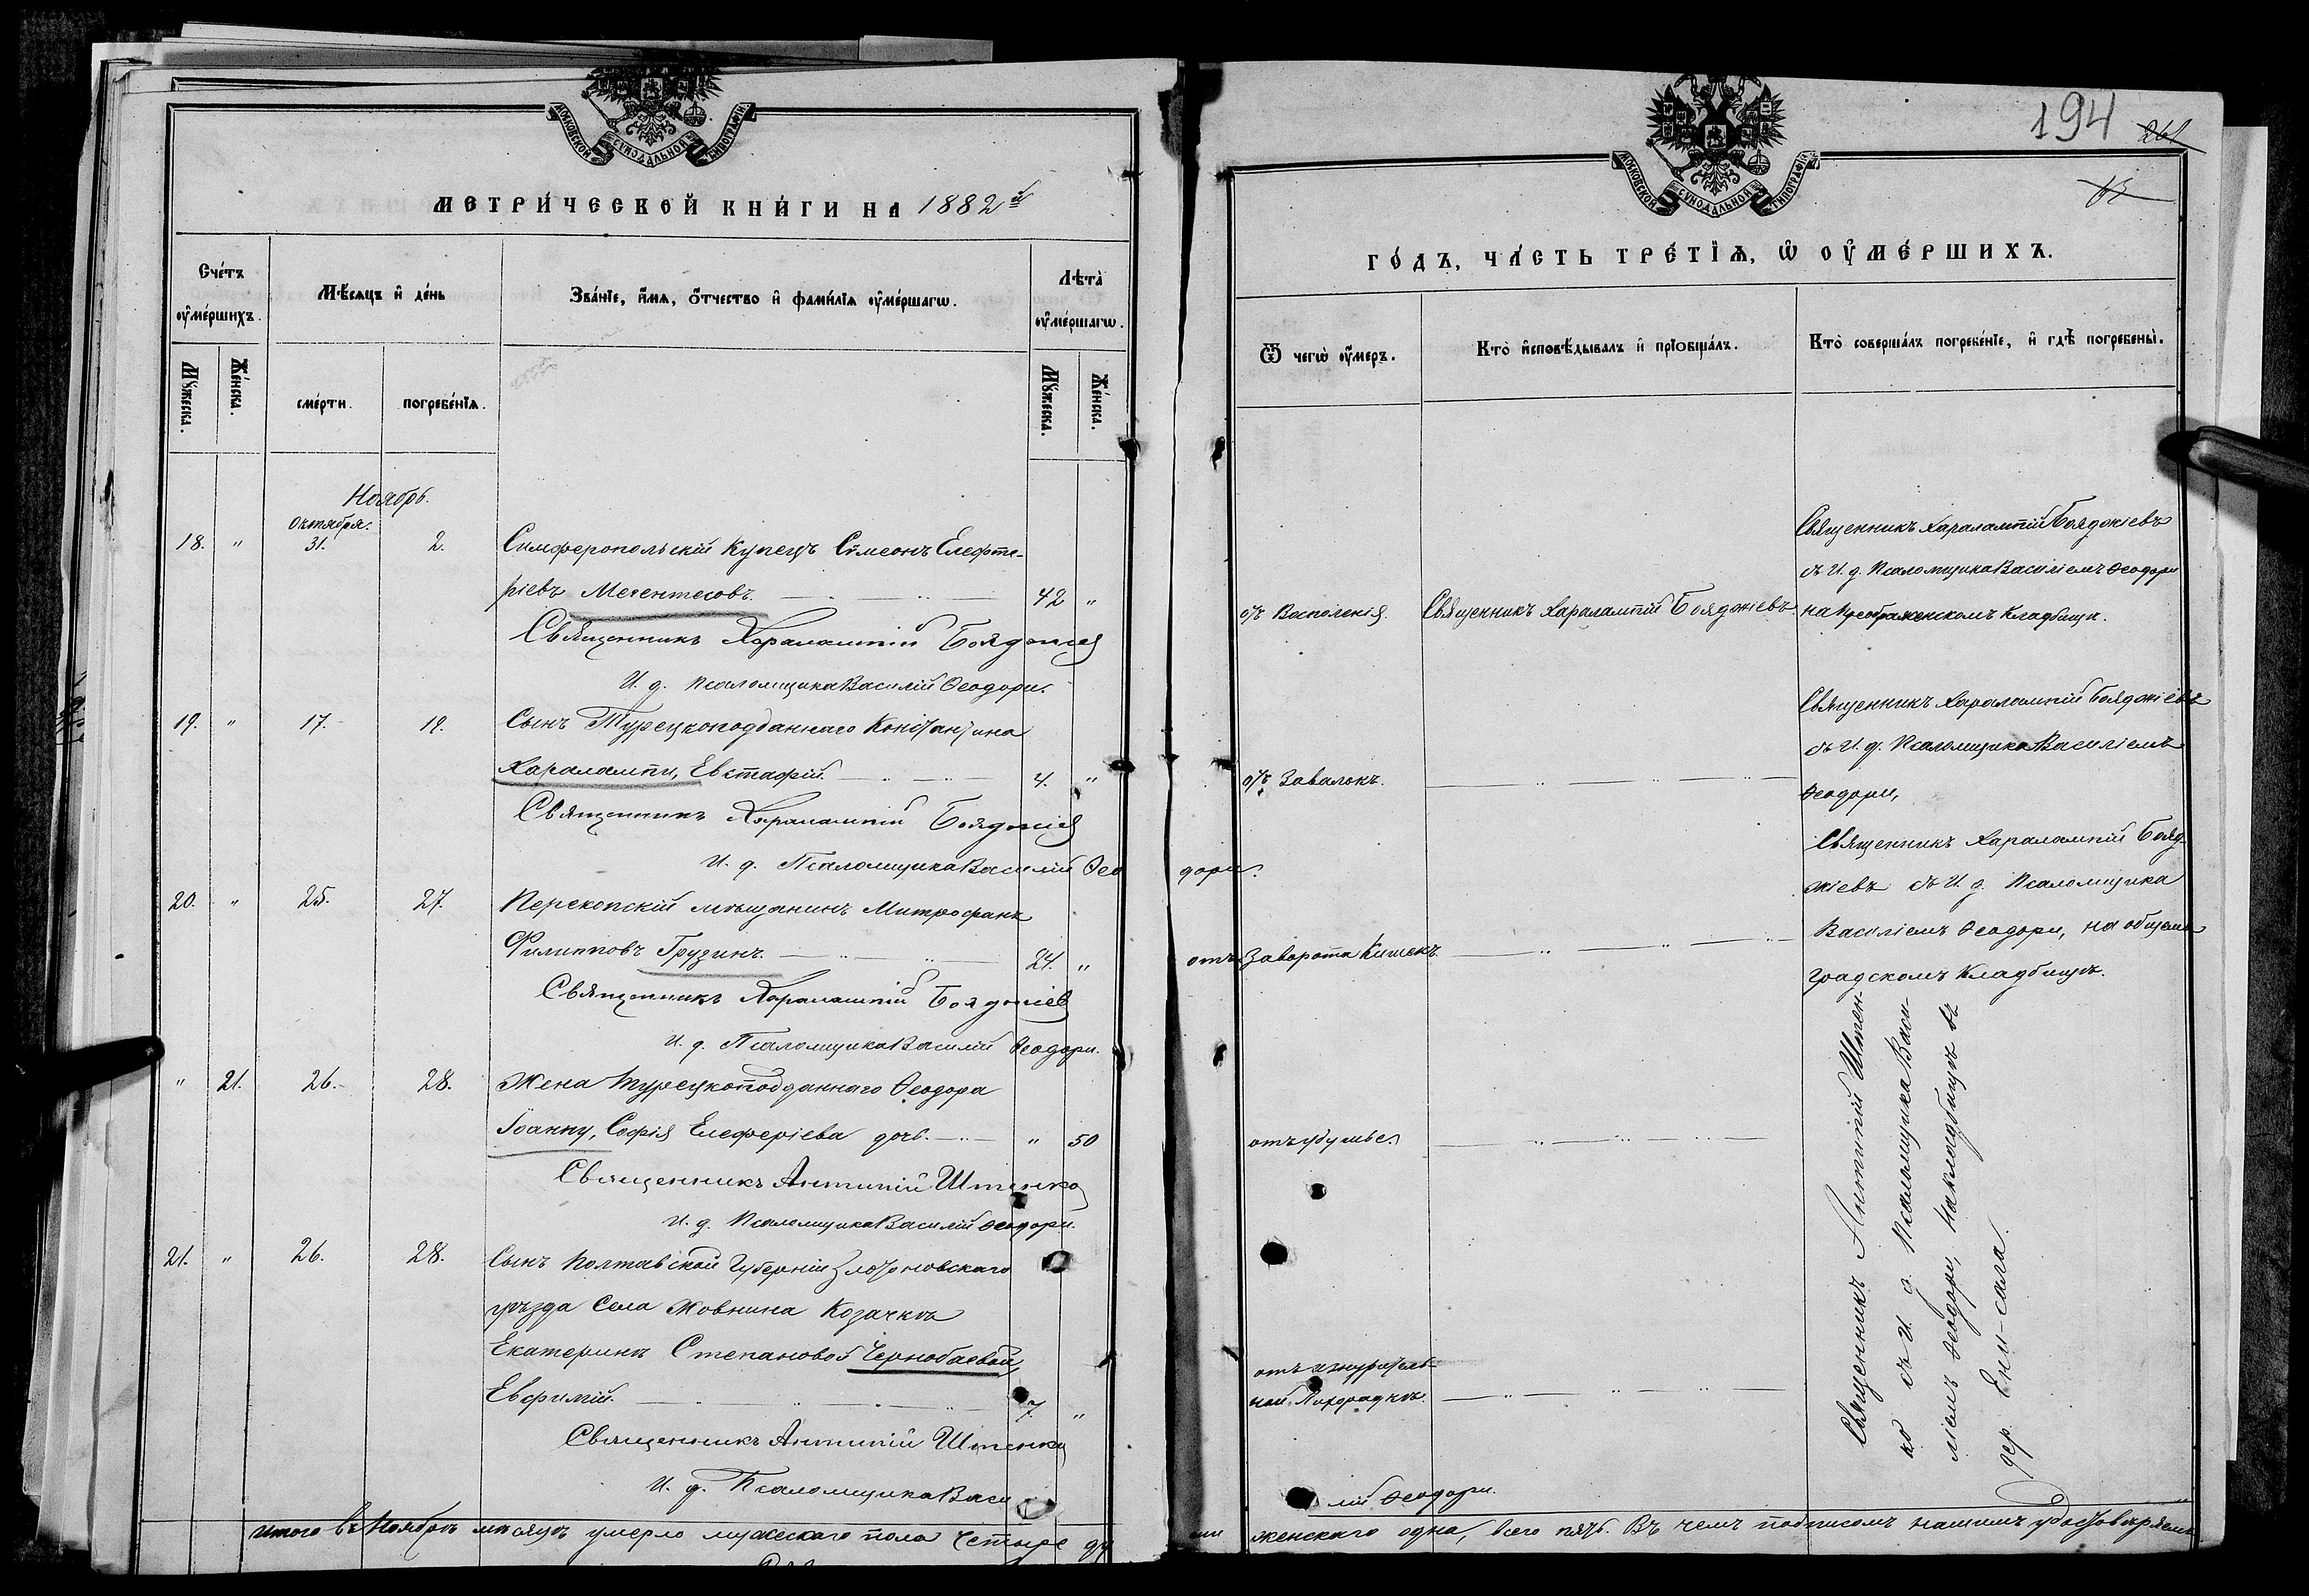 МОСКОВСКОЙ СѴНОДАЛЬНОЙ ТИПОГРАФІИ
МЕТРИ́ЧЕСКОЙ КНИ́ГИ НА 1882 й
Сче́тъ оу҆ме́ршихъ.
Мѣ́сяцъ и҆ де́нь
Зва́нїе, и҆́мѧ, ѻ҆́тчество и҆ фами́лїѧ оу҆ме́ршагѡ.
Лѣта̀ оу҆ме́ршагѡ.
Мꙋ́жеска.
Же́нска.
сме́рти.
погребе́нїѧ.
Мꙋ́жеска.
Же́нска.
Ноябрь.
18. " Октября. 31. 2. Симферопольскій Купецъ Сѵмеонъ Елефте-
ріевъ Месентесовъ. 42 "
Священникъ Харалампій Бояджіев
И. д. Псаломщика Василій Ѳеодори.
19. " 17. 19. Сынъ Турецкоподданнаго Константина
Харалампи, Евстафій. 4. "
Священникъ Харалампій Бояджіев
И. д. Псаломщика Василій Ѳеодори.
20. " 25. 27. Перекопскій мѣщанинъ Митрофанъ
Филипповъ Грузинъ. 24. "
Священникъ Харалампій Бояджіев
И. д. Псаломщика Василій Ѳеодори.
" 21. 26. 28. Жена Турецкоподданнаго Ѳеодора
Іоанну, Софія Елеферіева дочь. " 50
Священникъ Антипій Штенко
И. д. Псаломщика Василій Ѳеодори.
21. " 26. 28. Сынъ Полтавской Губерніи Золотоновскаго
уѣзда Села Жовнина Козачки
Екатерины Степановой Чернобаевой,
Евфимій. 7. "
Священникъ Антипій Штенко
И. д. Псаломщика Василій Ѳеодори.
Итого въ Ноябрѣ мѣсяцѣ умерло мужескаго пола четыре
194
МОСКОВСКОЙ СѴНОДАЛЬНОЙ ТИПОГРАФІИ
ГО́ДЪ, ЧА́СТЬ ТРЕ́ТЇѦ, Ѡ҆ ОУ҆МЕ́РШИХЪ.
Ѿ чегѡ̀ оу҆́меръ.
Кто̀ и҆сповѣ́дывалъ и҆ прїѡбща́лъ.
Кто̀ соверша́лъ погребе́нїе, и҆ гдѣ̀ погребены̀.
отъ Воспаленія.
Священникъ Харалампій Бояджіевъ
Священникъ Харалампій Бояджіевъ
съ И. д. Псаломщика Василіемъ Ѳеодори
на Преображенскомъ Кладбищѣ.
отъ Завалокъ.
Священникъ Харалампій Бояджіевъ
съ И. д. Псаломщика Василіемъ
Ѳеодори,
отъ Заворота Кишекъ.
Священникъ Харалампій Бояд-
жіевъ съ И. д. Псаломщика
Василіемъ Ѳеодори, на общемъ
градскомъ Кладбищѣ.
отъ
отъ изнуритель-
ной Лихорадки.
Священникъ Антипій Штен-
ко съ И. д. Псаломщика Васи-
ліемъ Ѳеодори, на кладбищѣ въ
дер. Ени-сала.
женскаго одна, всего пять. Въ чемъ подписомъ нашимъ удостовѣряемъ